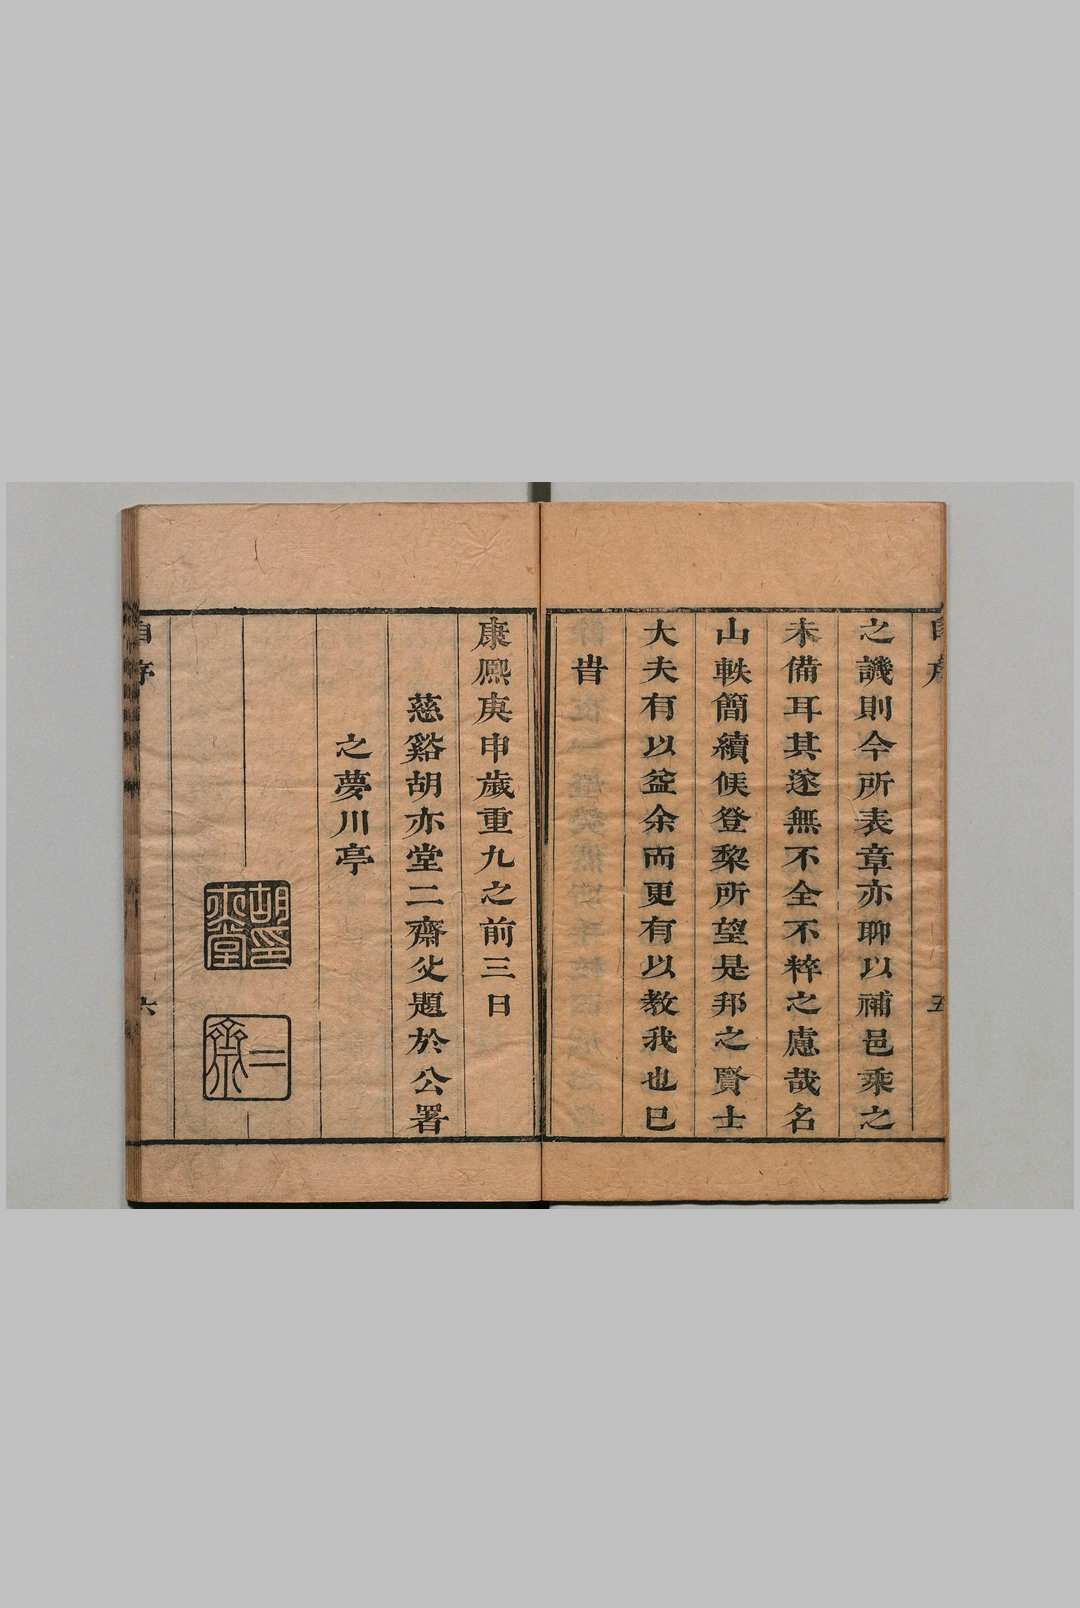 自序
五
之譏則今所表章亦聊以補邑乘之
未備耳其遂無不全不粹之慮哉名
山軼簡續候登棃所望是邦之賢士
大夫有以益余而更有以教我也巳
旹
康熙庚申歲重九之前三日
慈谿胡亦堂二齋父題於公署
之夢川亭
胡印亦堂
二齋
自序
六